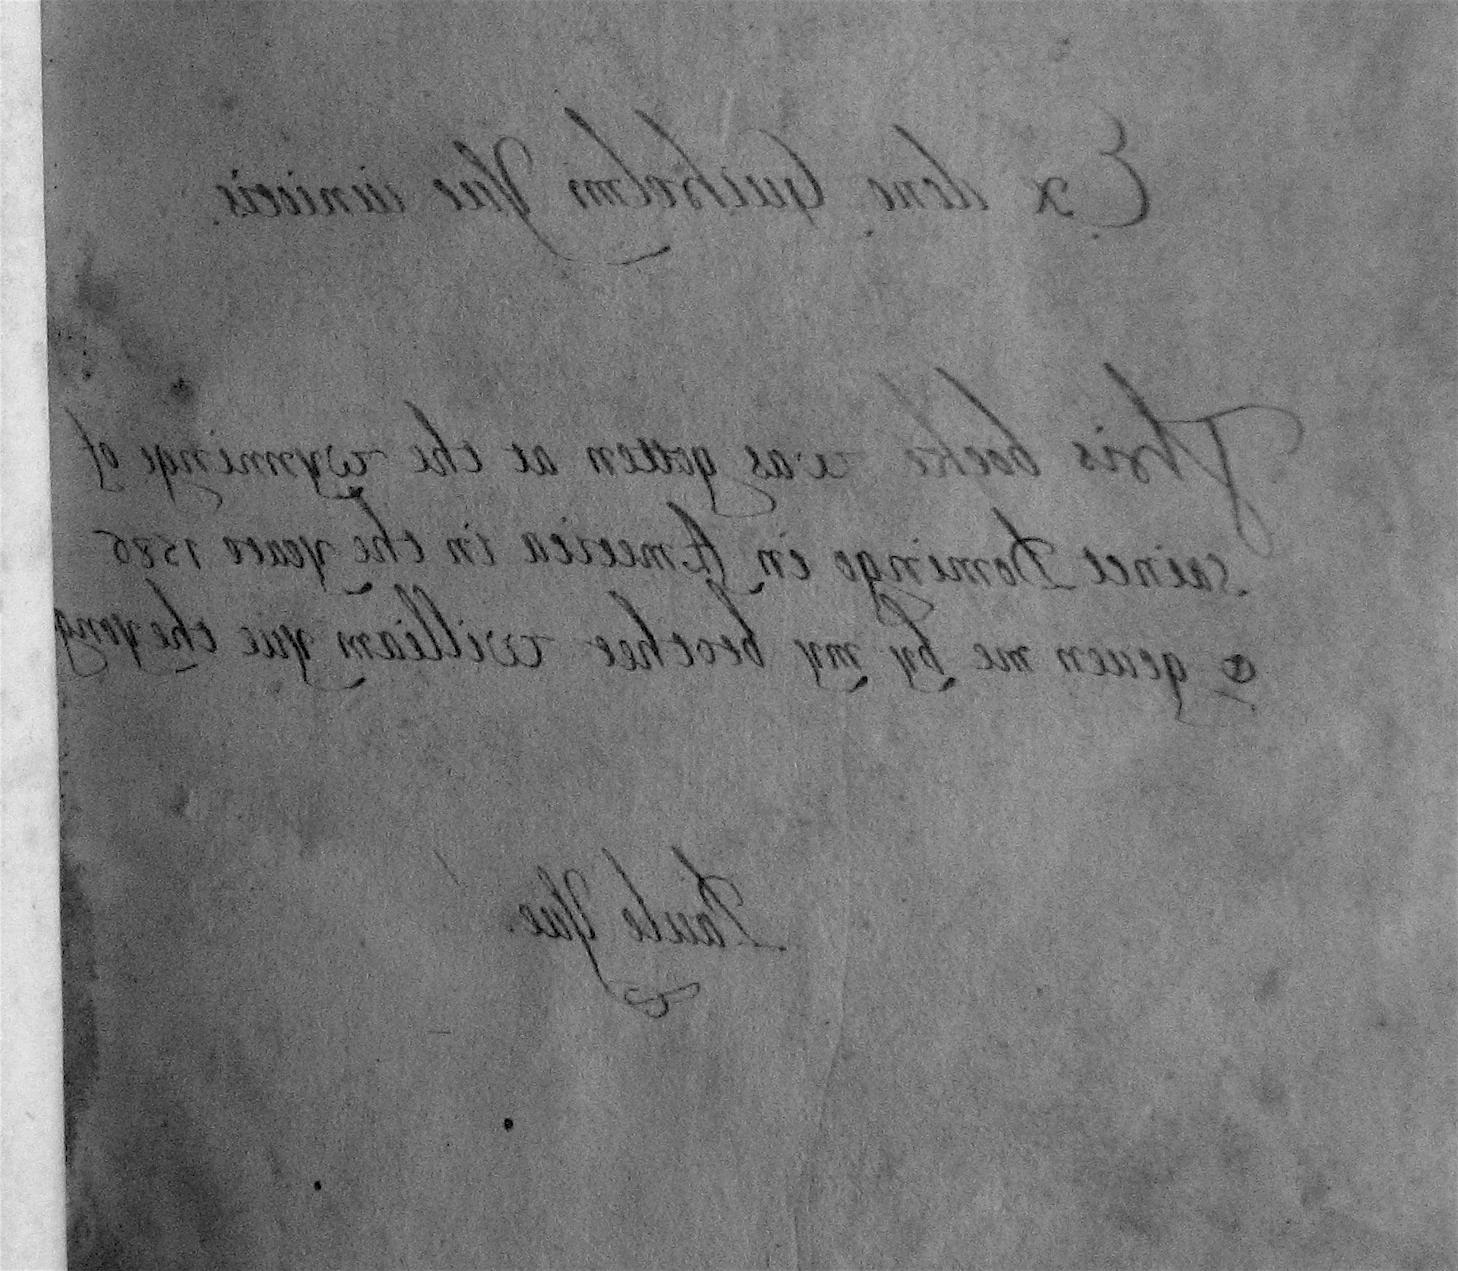 Ex dono Guihelmi Yue iunioris.
This booke was gotten at the wynninge of
sainct Domingo in America in the yeare 1586
& geuen me by my brother william yue the yong
Paule Yue.